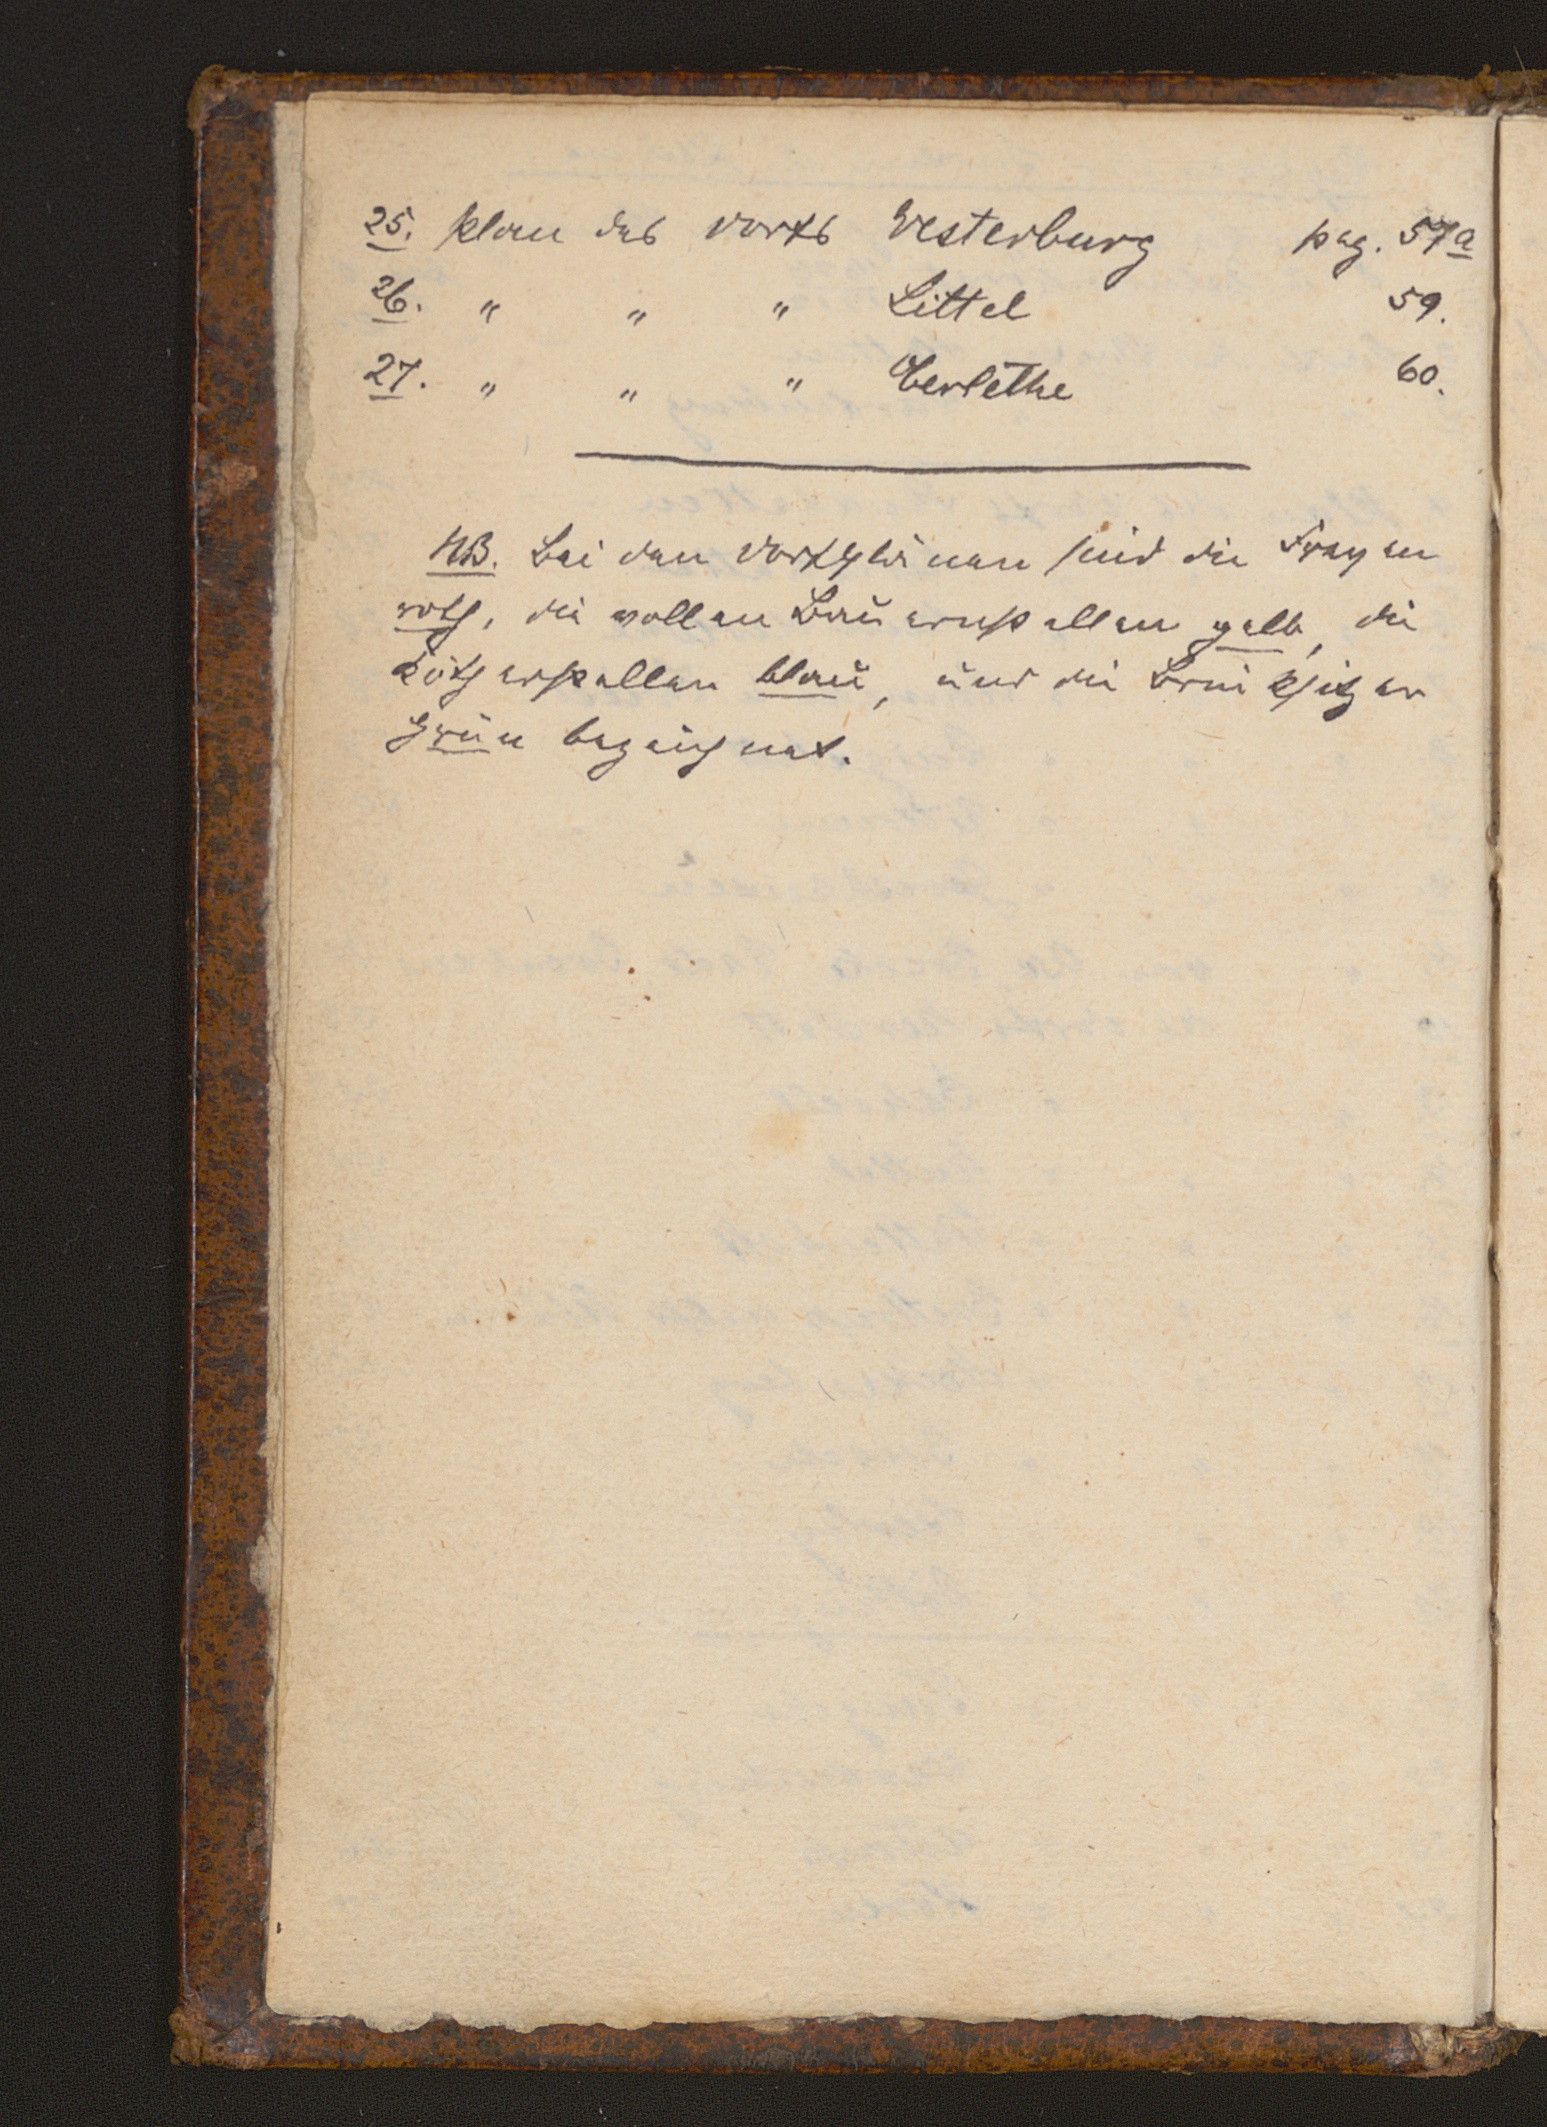 25. Plan des Dorfs Westerburg pag. 57a
26. " " " Littel 59.
27. " " " Oberlethe 60.
NB. Bei den Dorfplänen sind die Freyen
roth, die vollen Bauernstellen gelb, die
Kötherstellen blau, und die Brinksitzer
Grün bezeichnet.